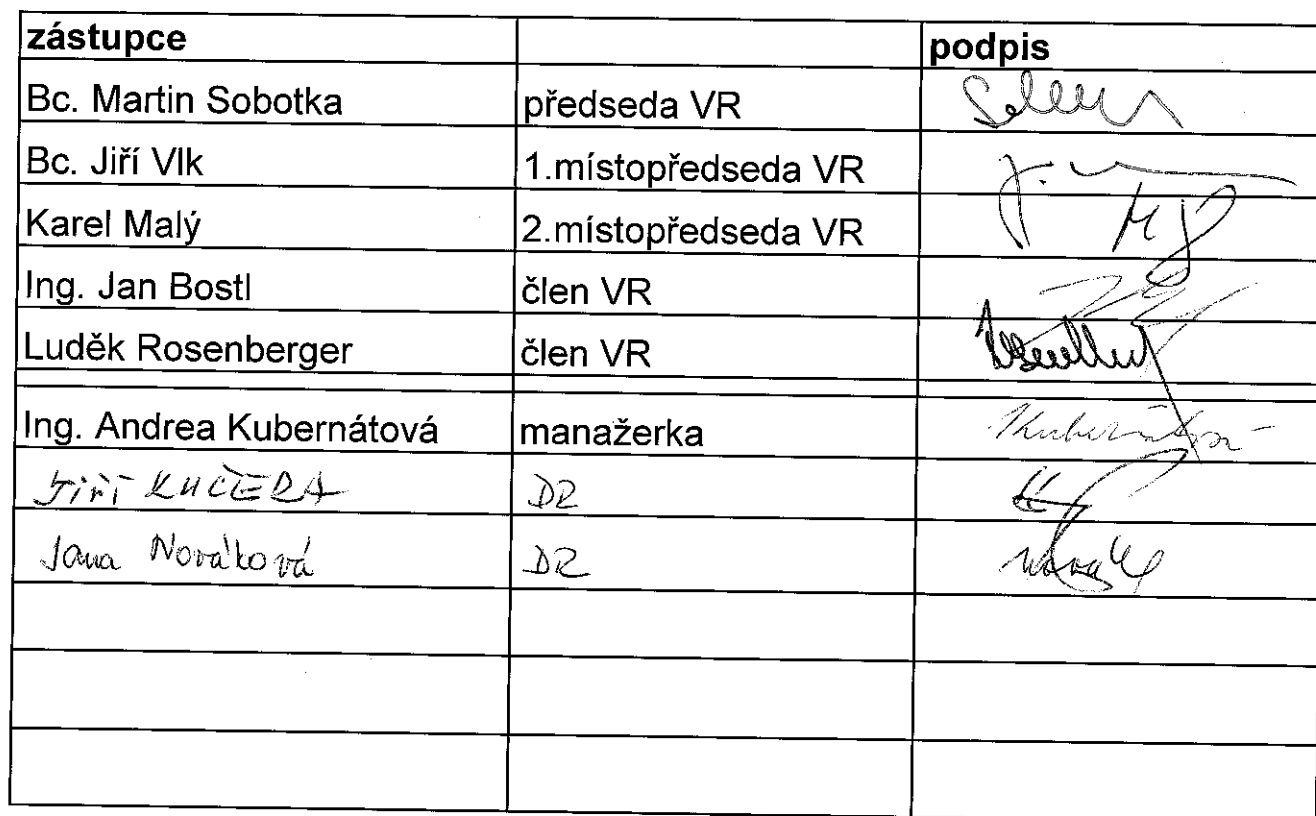 zástupce podpis
Bc. Martin Sobotka předseda VR
Bc. Jiří Vlk 1.místopředseda VR
Karel Malý 2.místopředseda VR
Ing. Jan Bostl člen VR
Luděk Rosenberger člen VR
Ing. Andrea Kubernátová manažerka Kubernátová
Jiří KUČERA DR
Jana Nováková DR